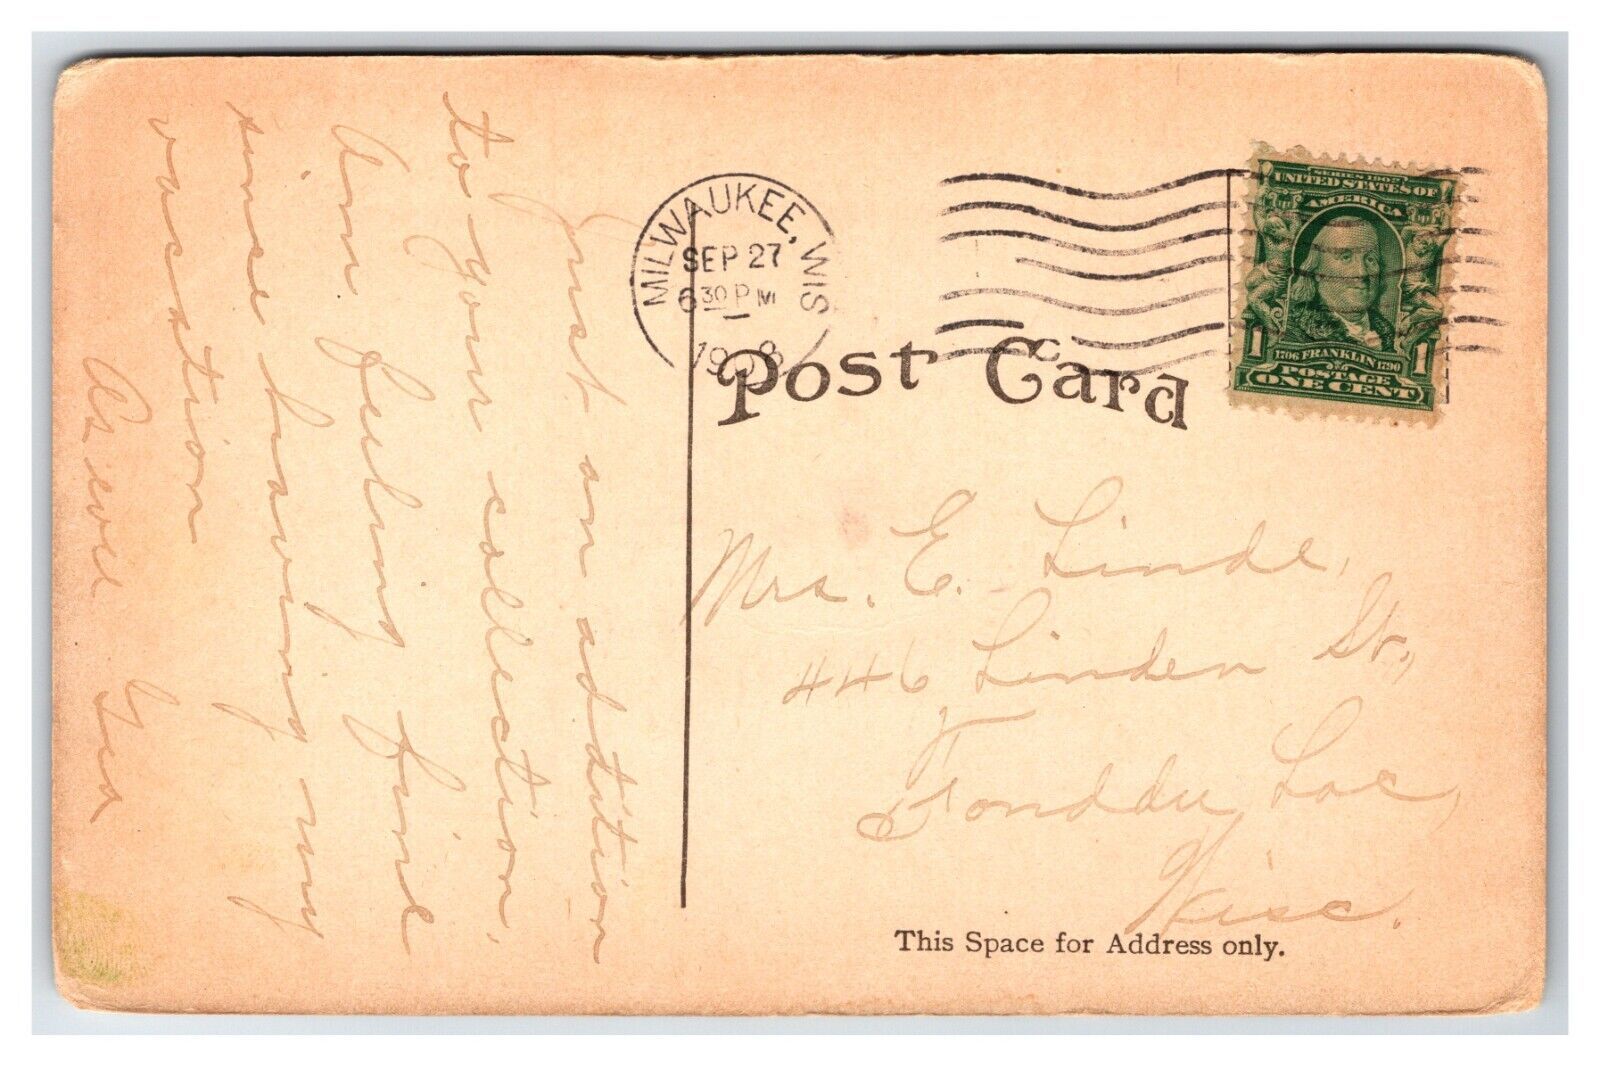 Just an addition
to your collection.
Am feeling fine
since having my
vacation
As ever
MILWAUKEE, WIS
SEP 27
6 30 PM
1908
SERIES 1902
UNITED STATES OF
AMERICA
1706 FRANKLIN 1790
POSTAGE
1 ONE CENT 1
Post Card
Mrs. E. Linde,
446 Linden St,
Fonddu Lac,
Wisc.
This Space for Address only.